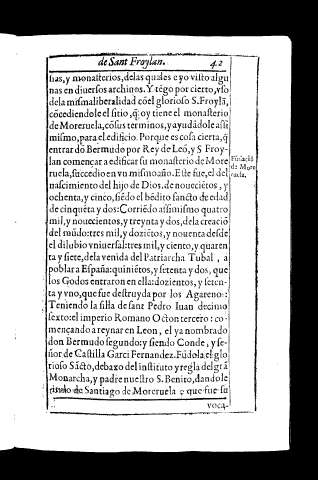 de Sant Froylan. 42
sias, y monasterios, de las quales e yo visto algu
nas en diuersos archiuos. Y tēgo por cierto, vso
de la misma liberalidad cō el glorioso S. Froylā,
cōcediendole el sitio, q̄ oy tiene el monasterio
de Moreruela, cō sus terminos, y ayudādole assi
mismo, para el edificio. Porque es cosa cierta, q̄
entrar dō Bermudo por Rey de Leō, y S. Froy-
lan començar a edificar su monasterio de More
ruela, succedio en vn mismo año. Este fue, el del
nascimiento del hijo de Dios, de nouecietos, y
ochenta, y cinco, siēdo el bēdito sancto de edad
de cinquēta y dos: Corriēdo assimismo quatro
mil, y nouecientos, y treynta y dos, de la creaciō
del mūdo: tres mil, y doziētos, y nouenta desde
el dilubio vniuersal: tres mil, y ciento, y quaren
ta y siete, de la venida del Patriarcha Tubal, a
poblar a España: quiniētos, y setenta y dos, que
los Godos entraron en ella: dozientos, y seten-
ta y vno, que fue destruyda por los Agareno:
Teniendo la silla de sant Pedro Iuan decimo
sexto: el imperio Romano Octon tercero: co-
mençando a reynar en Leon, el ya nombrado
don Bermudo segundo: y siendo Conde, y se-
ñor de Castilla Garci Fernandez. Fūdola el glo
rioso Sācto, debaxo del instituto y regla del grā
Monarcha, y padre nuestro S. Benito, dandole
titulo de Santiago de Moreruela: que fue su
voca-
Fūdaciō
de More
ruela.